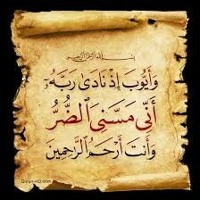 بسم الله الرحمن الرحيم
وَأَيُّوبَ إِذْ نَادَىٰ رَبَّهُۥٓ
أَنِّى مَسَّنِىَ ٱلضُّرُّ
وَأَنتَ أَرْحَمُ ٱلرَّٰحِمِينَ